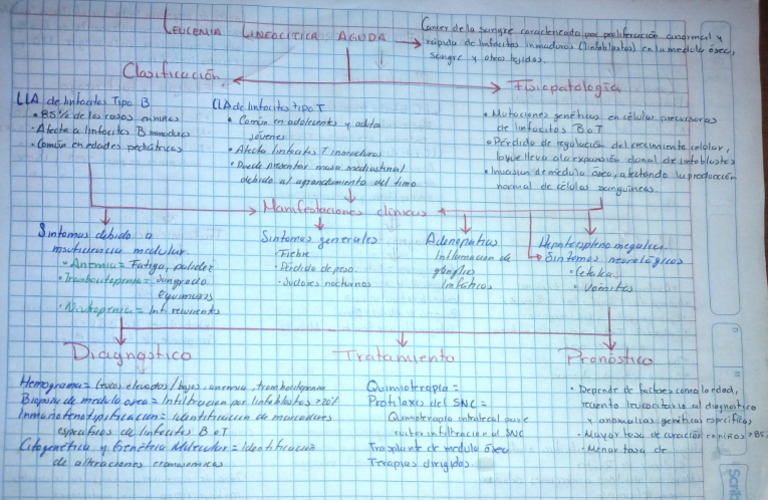 LEUCEMIA LINFOCITICA AGUDA
Cancer de la sangre caracterizada por proliferación anormal y
rapida de linfocitos inmaduros (linfoblastos) en la medula ósea,
sangre y otros tejidos.
Clasificación
Fisiopatología
LLA de linfocitos Tipo B
• 85% de los casos
• Afecta a linfocitos B inmaduros
• Común en edades pediatricas
LLA de linfocitos tipo T
• Común en adolecentes y adulto
jóvenes
• Afecta linfocitos T inmaduros
• Puede presentar masa mediastinal
debido al agrandamiento del timo
• Mutaciones genéticas en células precursoras
de linfocitos B o T
• Pérdida de regulación del crecimiento celular,
lo que lleva a la expansión clonal de linfoblastos
• Invasion de médula ósea, afectando la producción
normal de células sanguíneas.
Manifestaciones clinicas
Sintomas debido a
insuficiencia medular.
• Anemia = Fatiga, palidez
• Trombocitopenia = Sangrado
Equimosis
• Neutropenia = Inf recurrentes
Sintomas generales
• Fiebre
• Pérdida de peso
• Sudores nocturnos
Adenopatias
Inflamación de
ganglios
linfaticos
Hepatoesplenomegalia
Sintomas neurológicos
• Cefalea
• Vomitos
Diagnostico
Tratamiento
Pronóstico
Hemograma = Leucos elevados / bajos, anemia, trombocitopenia
Biopsia de medula osea = Infiltración por linfoblastos >20%
Inmunofenotipificacion = identificación de marcadores
especificos de linfocitos B o T
Citogenética y Genética Molecular = Identificación
de alteraciones cromosomicas
Quimioterapia =
Profilaxis del SNC =
Quimioterapia intratecal para
evitar infiltración al SNC
Trasplante de medula ósea
Terapias dirigidas.
• Depende de factores como la edad,
recuento leucocitario al diagnostico
y anomalias genéticas especificas
• Mayor tasa de curación en niños >85
• Menor tasa de